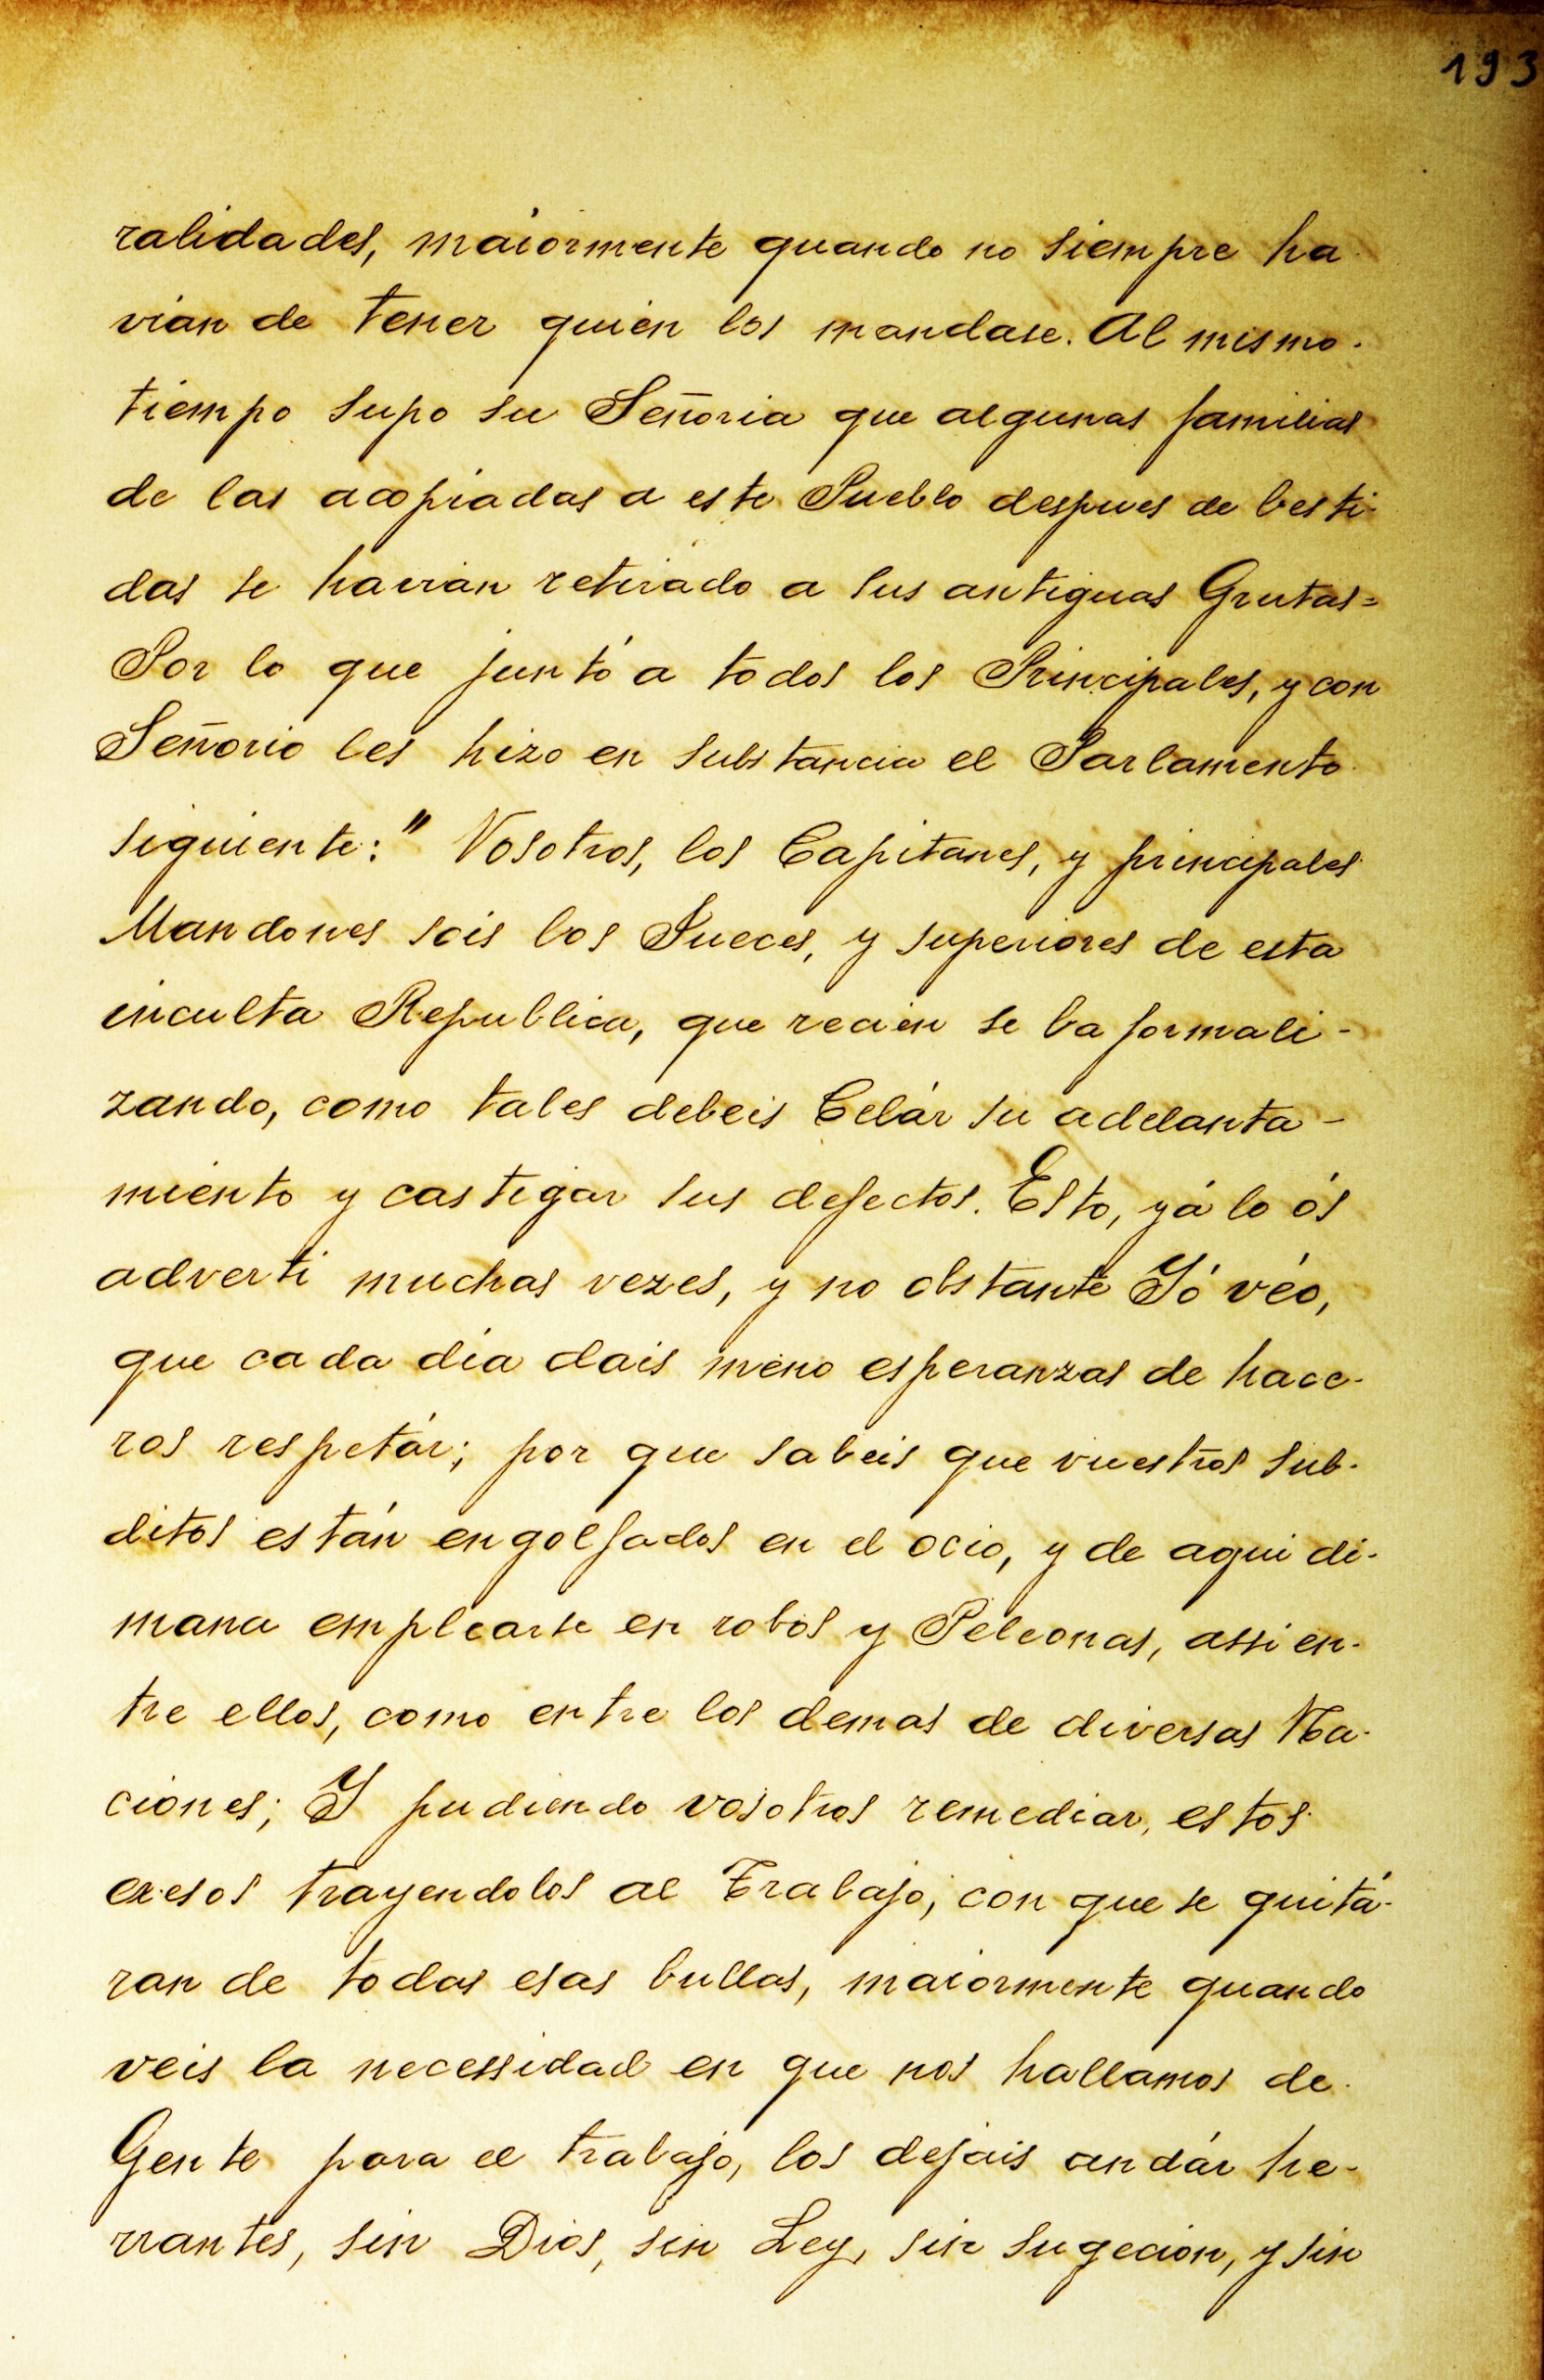 193
ralidades, maiormente quando no siempre ha-
vian de tener quien los mandase. Al mismo-
tiempo supo su Señoria que algunas familias
de las acopiadas a este Pueblo despues de besti-
das se havian retirado a sus antiguas Grutas=
Por lo que juntó a todos los Principales, y con
Señorio les hizo en substancia el Parlamento
siguiente:" Vosotros, los Capitanes, y principales
Mandones sois los Jueces, y superiores de esta
inculta Republica, que recien se ba formali-
zando, como tales debeis Celár su adelanta-
miento y castigar sus defectos. Esto, yá lo ós
adverti muchas vezes, y no obstante Yó véo,
que cada dia dais meno esperanzas de hace-
ros respetár; por que sabeis que vuestros sub-
ditos están engolfados en el ocio, y de aqui di-
mana emplearse en robos y Peleonas, assi en-
tre ellos, como entre los demas de diversas Na-
ciones; Y pudiendo vosotros remediar, estos
exesos trayendolos al Trabajo; con que se quitá-
ran de todas esas bullas, maiormente quando
veis la necessidad en que nos hallamos de
Gente para el trabajo, los dejais andár he-
rrantes, sin Dios, sin Ley, sin sugecion, y sin